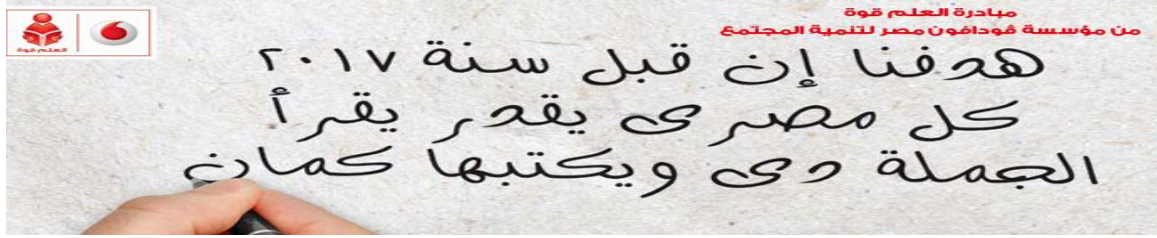 مبادرة العلم قوة
من مؤسسة ڤودافون مصر لتنمية المجتمع
العلم قوة
هدفنا إن قبل سنة ٢٠١٧
كل مصرى يقدر يقرأ
الجملة دى ويكتبها كمان